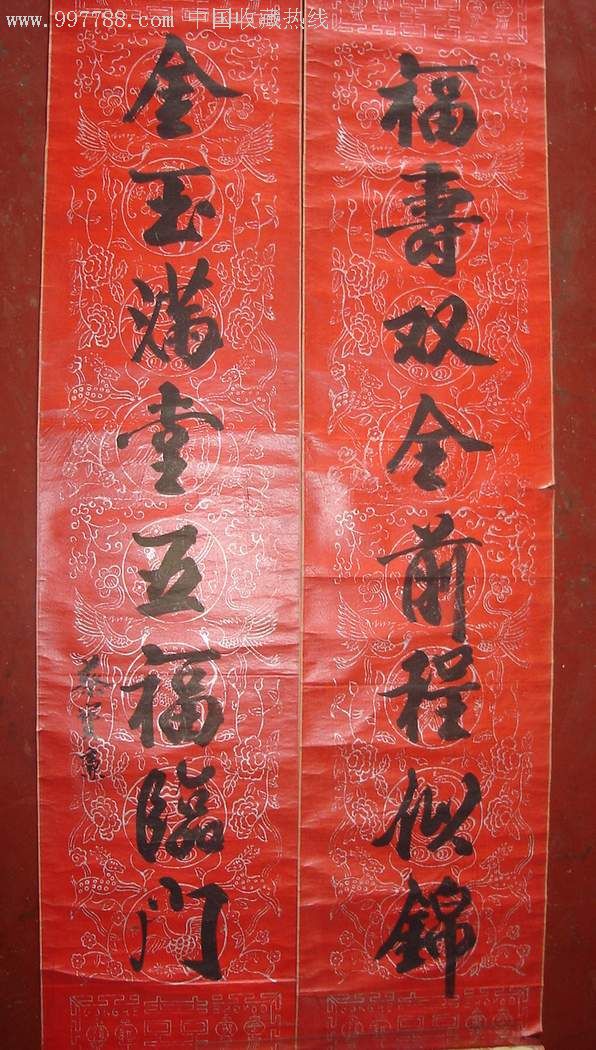 www.997788.com 中国收藏热线
福壽双全前程似錦
金玉满堂五福臨门